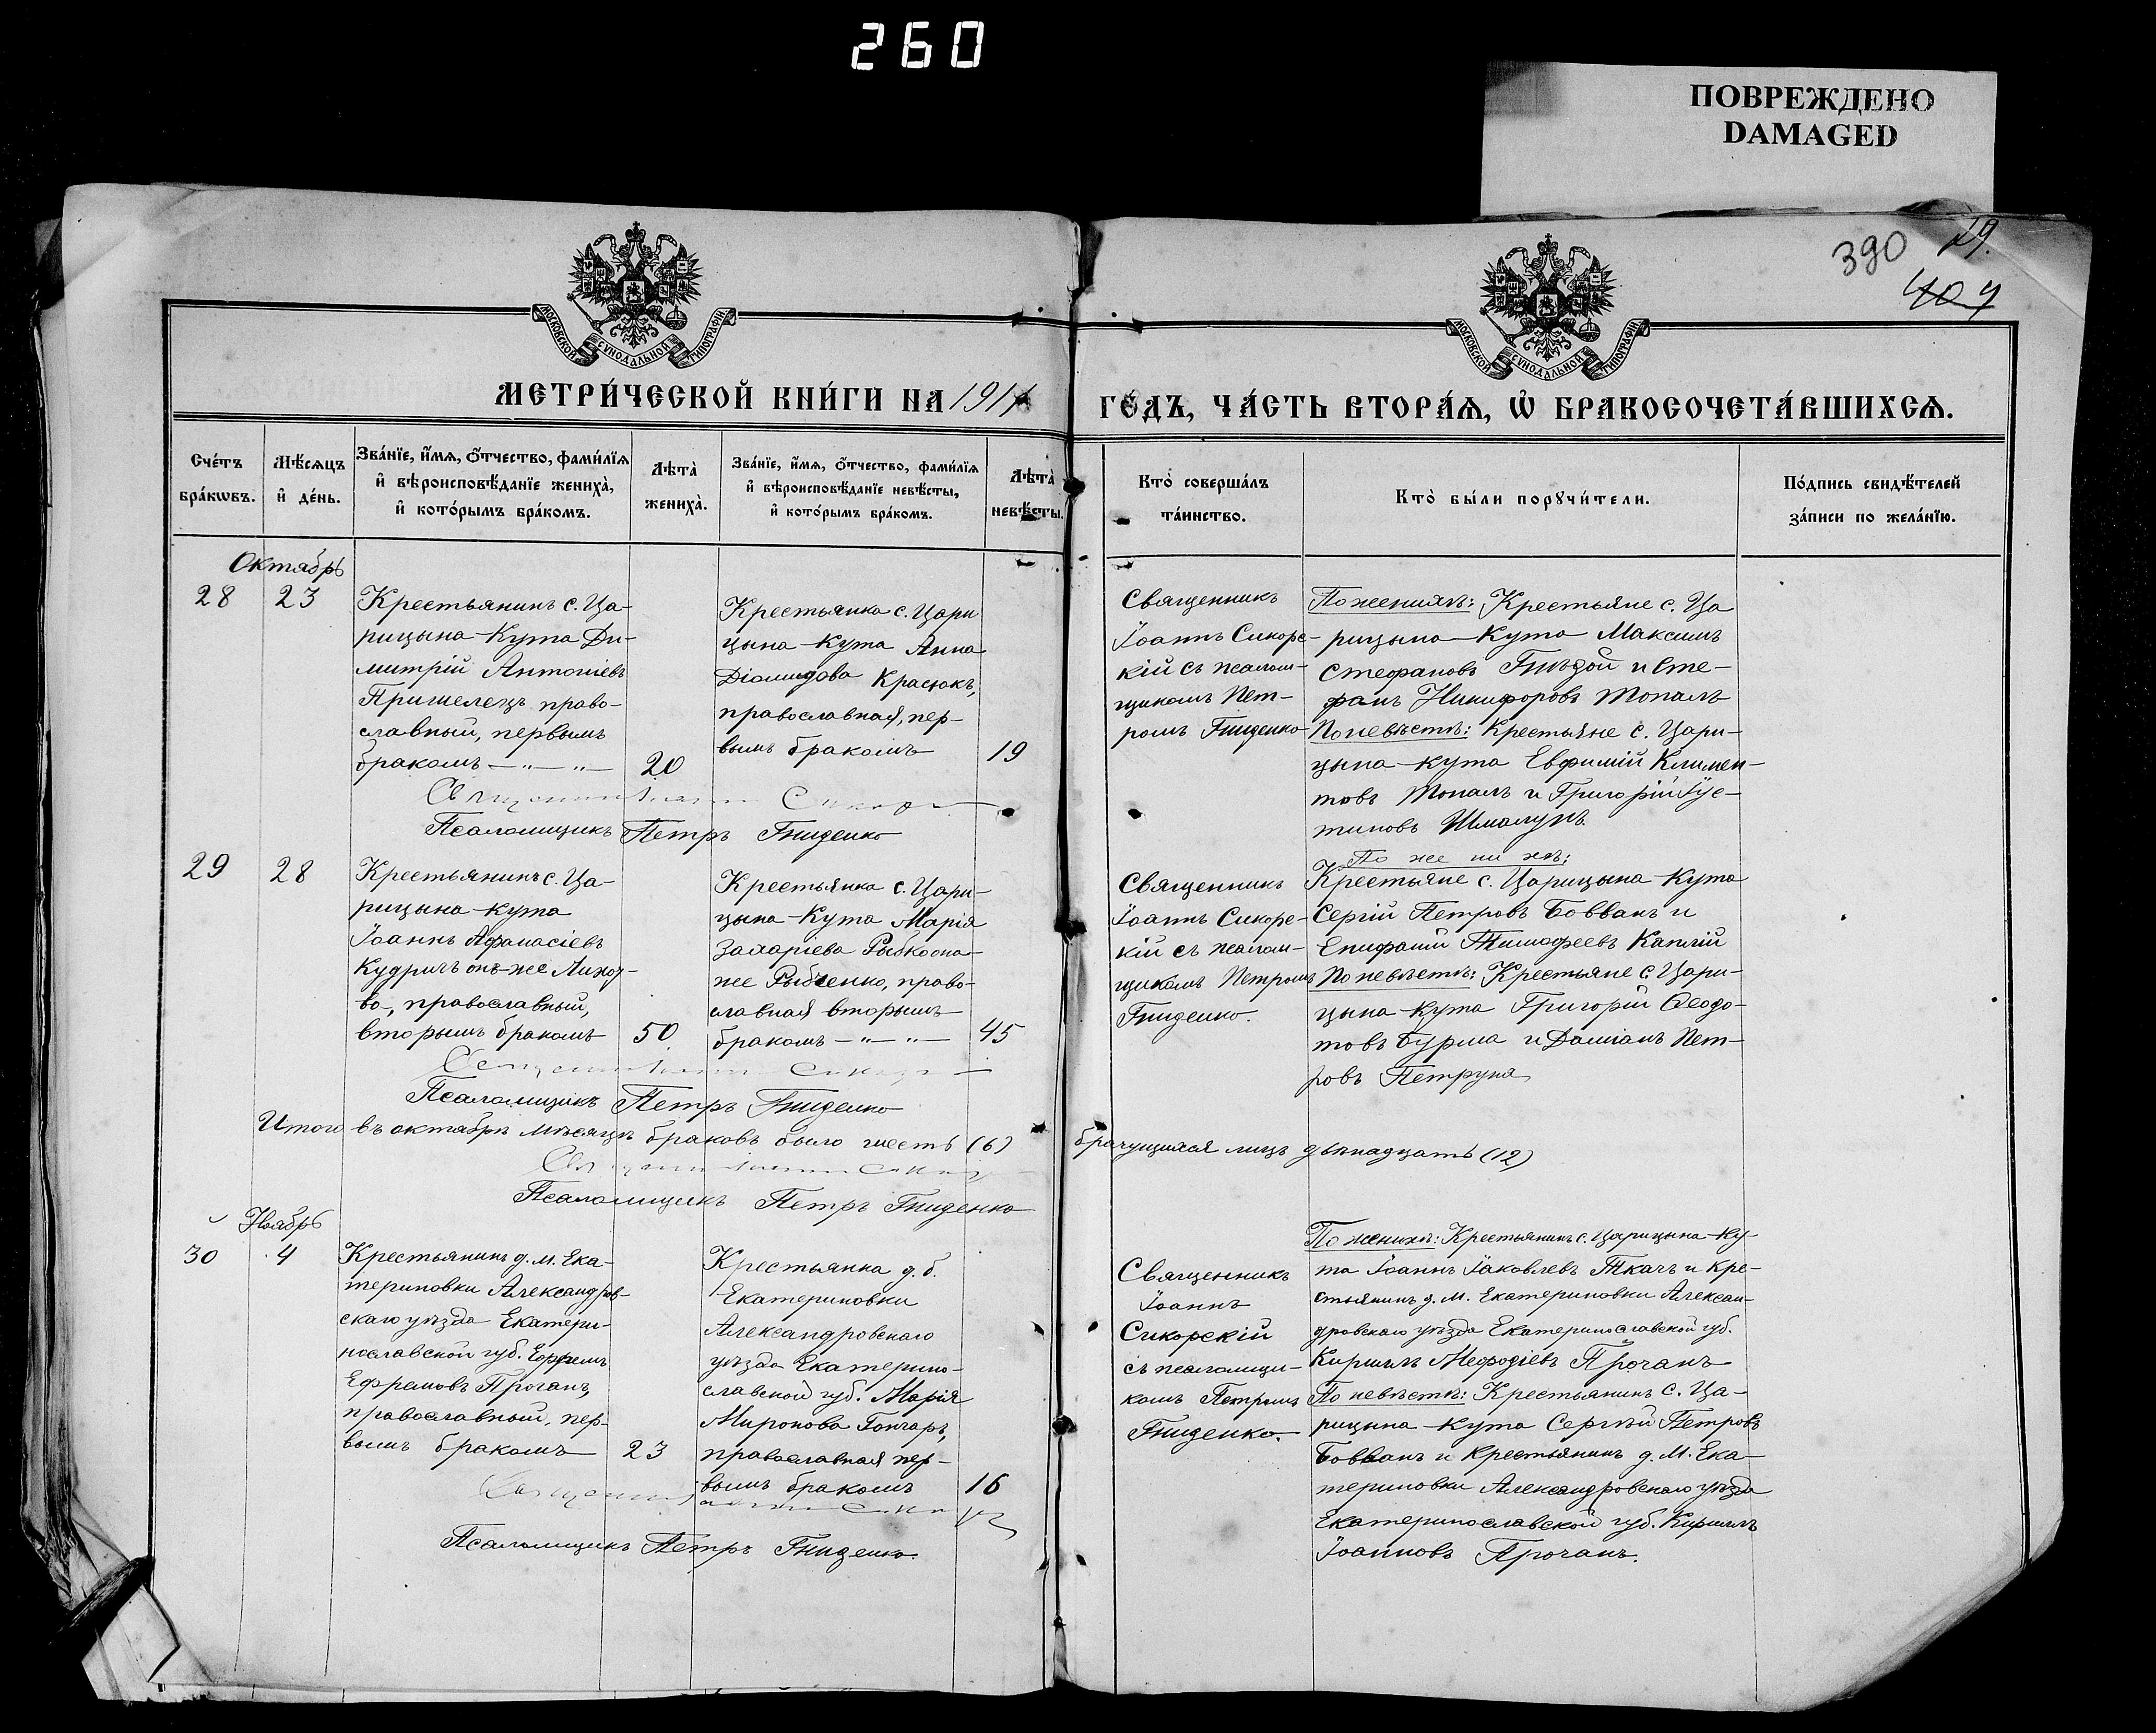 260
ПОВРЕЖДЕНО
DAMAGED
390 29.
404
МОСКОВСКОЙ СѴНОДАЛЬНОЙ ТИПОГРАФІИ
МОСКОВСКОЙ СѴНОДАЛЬНОЙ ТИПОГРАФІИ
МЕТРИ́ЧЕСКОЙ КНИ́ГИ НА 1911
ГО́ДЪ, ЧА́СТЬ ВТОРА́Я, Ѡ҆ БРАКОСОЧЕТА́ВШИХСЯ.
Сче́тъ
бра́кѡвъ.
Мѣ́сяцъ
и҆ де́нь.
Зва́нїе, и҆́мя, ѻ҆́тчество, фами́лїя
и҆ вѣроисповѣ́данїе жениха̀,
и҆ кото́рымъ бра́комъ.
Лѣта̀
жениха̀.
Зва́нїе, и҆́мя, ѻ҆́тчество, фами́лїя
и҆ вѣроисповѣ́данїе невѣ́сты,
и҆ кото́рымъ бра́комъ.
Лѣта̀
невѣ́сты.
Кто̀ соверша́лъ
та́инство.
Кто̀ бы́ли порꙋчи́тели.
По́дпись свидѣ́телей
за́писи по жела́нїю.
Октябрь
28 23
Крестьянинъ с. Ца-
рицына-Кута Ди-
митрій Антоніевъ
Пришелецъ право-
славный, первымъ
бракомъ — „ — „ —
20
Крестьянка с. Цари
цына-Кута Анна
Діомидова Красюкъ,
православная, пер-
вымъ бракомъ
19
Священникъ
Іоаннъ Сикорс-
кій съ псалом-
щикомъ Пет-
ромъ Гниденко
По женихѣ: Крестьяне с. Ца
рицына-Кута Максимъ
Стефановъ Гнѣдой и Сте-
фанъ Никифоровъ Топалъ
По невѣстѣ: Крестьяне с. Цари-
цына-Кута Евфимій Климен-
товъ Топалъ и Григорій Іус-
тиновъ Шмалунъ.
Псаломщикъ Петръ Гниденко
29 28
Крестьянинъ с. Ца-
рицына-Кута
Іоаннъ Афанасіевъ
Кудричъ онъ-же
во-, православный,
вторымъ бракомъ
50
Крестьянка с. Цари-
цына-Кута Марія
Захаріева Рыбко она-
же Рыбченко, право-
славная вторымъ
бракомъ — „ — „ —
45
Священникъ
Іоаннъ Сикорс-
кій съ псалом-
щикомъ Петромъ
Гниденко.
По же ни хѣ:
Крестьяне с. Царицына-Кута
Сергій Петровъ Бовванъ и
Епифаній Тимофеевъ Каплій
По невѣстѣ: Крестьяне с. Цари-
цына-Кута Григорій Ѳеодо-
товъ Бурма и Даміанъ Пет-
ровъ Петруня
Псаломщикъ Петръ Гниденко
Итого въ октябрѣ мѣсяцѣ браковъ было шесть (6) брачущихся лицъ двѣнадцать (12)
Псаломщикъ Петръ Гниденко
Ноябрь
30 4
Крестьянинъ д. М. Ека-
териновки Александров-
скаго уѣзда Екатери-
нославской губ. Ефремъ
Ефремовъ Прочанъ,
православный, пер-
вымъ бракомъ
23
Крестьянка д. б.
Екатериновки
Александровскаго
уѣзда Екатерино-
славской губ. Марія
Миронова Гончаръ,
православная пер-
вымъ бракомъ
16
Священникъ
Іоаннъ
Сикорскій
съ псаломщи-
комъ Петромъ
Гниденко.
По женихѣ: Крестьянинъ с. Царицына-Ку-
та Іоаннъ Іаковлевъ Ткачъ и кре-
стьянинъ д. М. Екатериновки Алексан-
дровскаго уѣзда Екатеринославской губ.
Кириллъ Меѳодіевъ Прочанъ
По невѣстѣ: Крестьянинъ с. Ца-
рицына-Кута Сергѣй Петровъ
Бовванъ и крестьянинъ д. М. Ека-
териновки Александровскаго уѣзда
Екатеринославской губ. Кириллъ
Іоанновъ Прочанъ.
Псаломщикъ Петръ Гниденко.